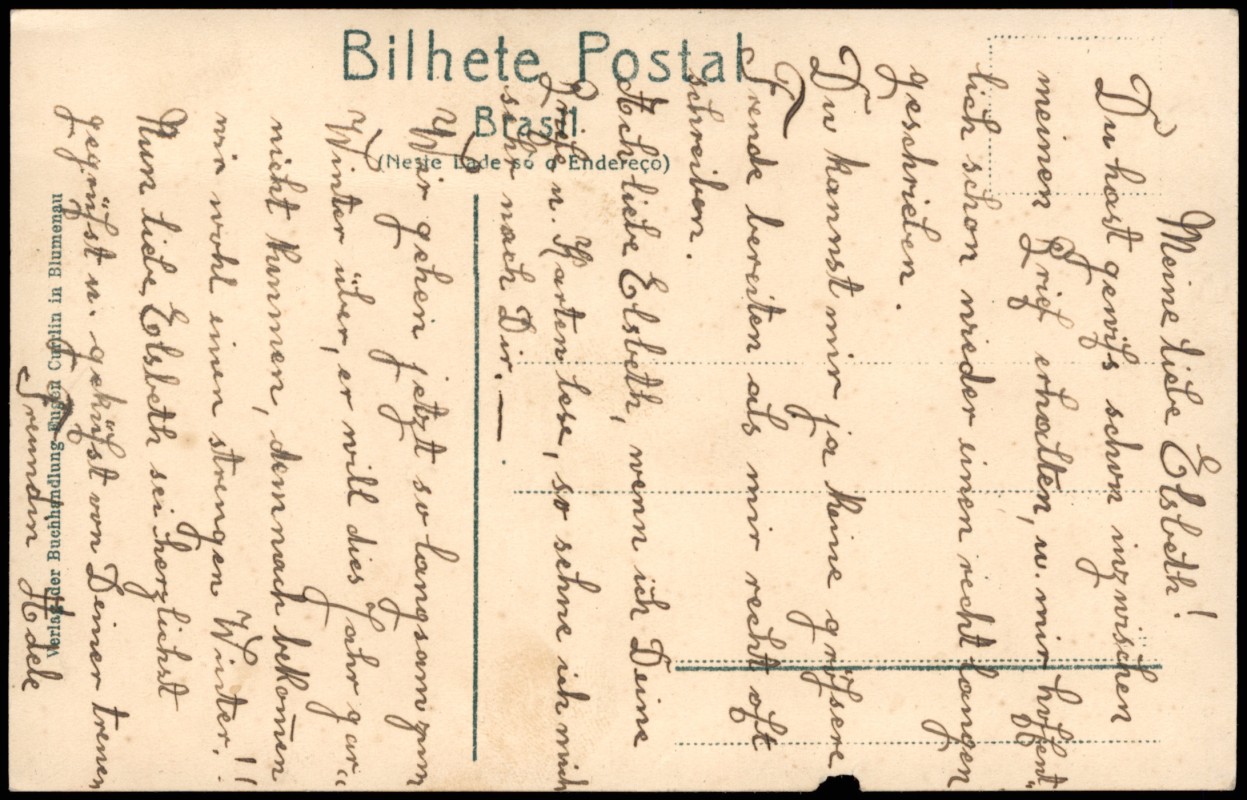 Bilhete Postal
Brasil
(Neste Lado só o Endereço)
Meine liebe Elsbeth!
Du hast gewiß schon inzwischen
meinen Brief erhalten, u. mir hoffent-
lich schon wieder einen recht langen
geschrieben.
Du kannst mir ja keine größere
Freude bereiten als mir recht oft
schreiben.
Ach liebe Elsbeth, wenn ich Deine
Briefe u. Karten lese, so sehne ich mich
sehr nach Dir. —
Wir gehen jetzt so langsam zum
Winter über, er will dies Jahr gar-
nicht kommen, demnach bekom̄en
wir wohl einen strengen Winter.!!
Nun liebe Elsbeth sei herzlichst
gegrüßt u. geküßt von Deiner treuen
Freundin Adele
Verlag der Buchhandlung Eugen Currlin in Blumenau